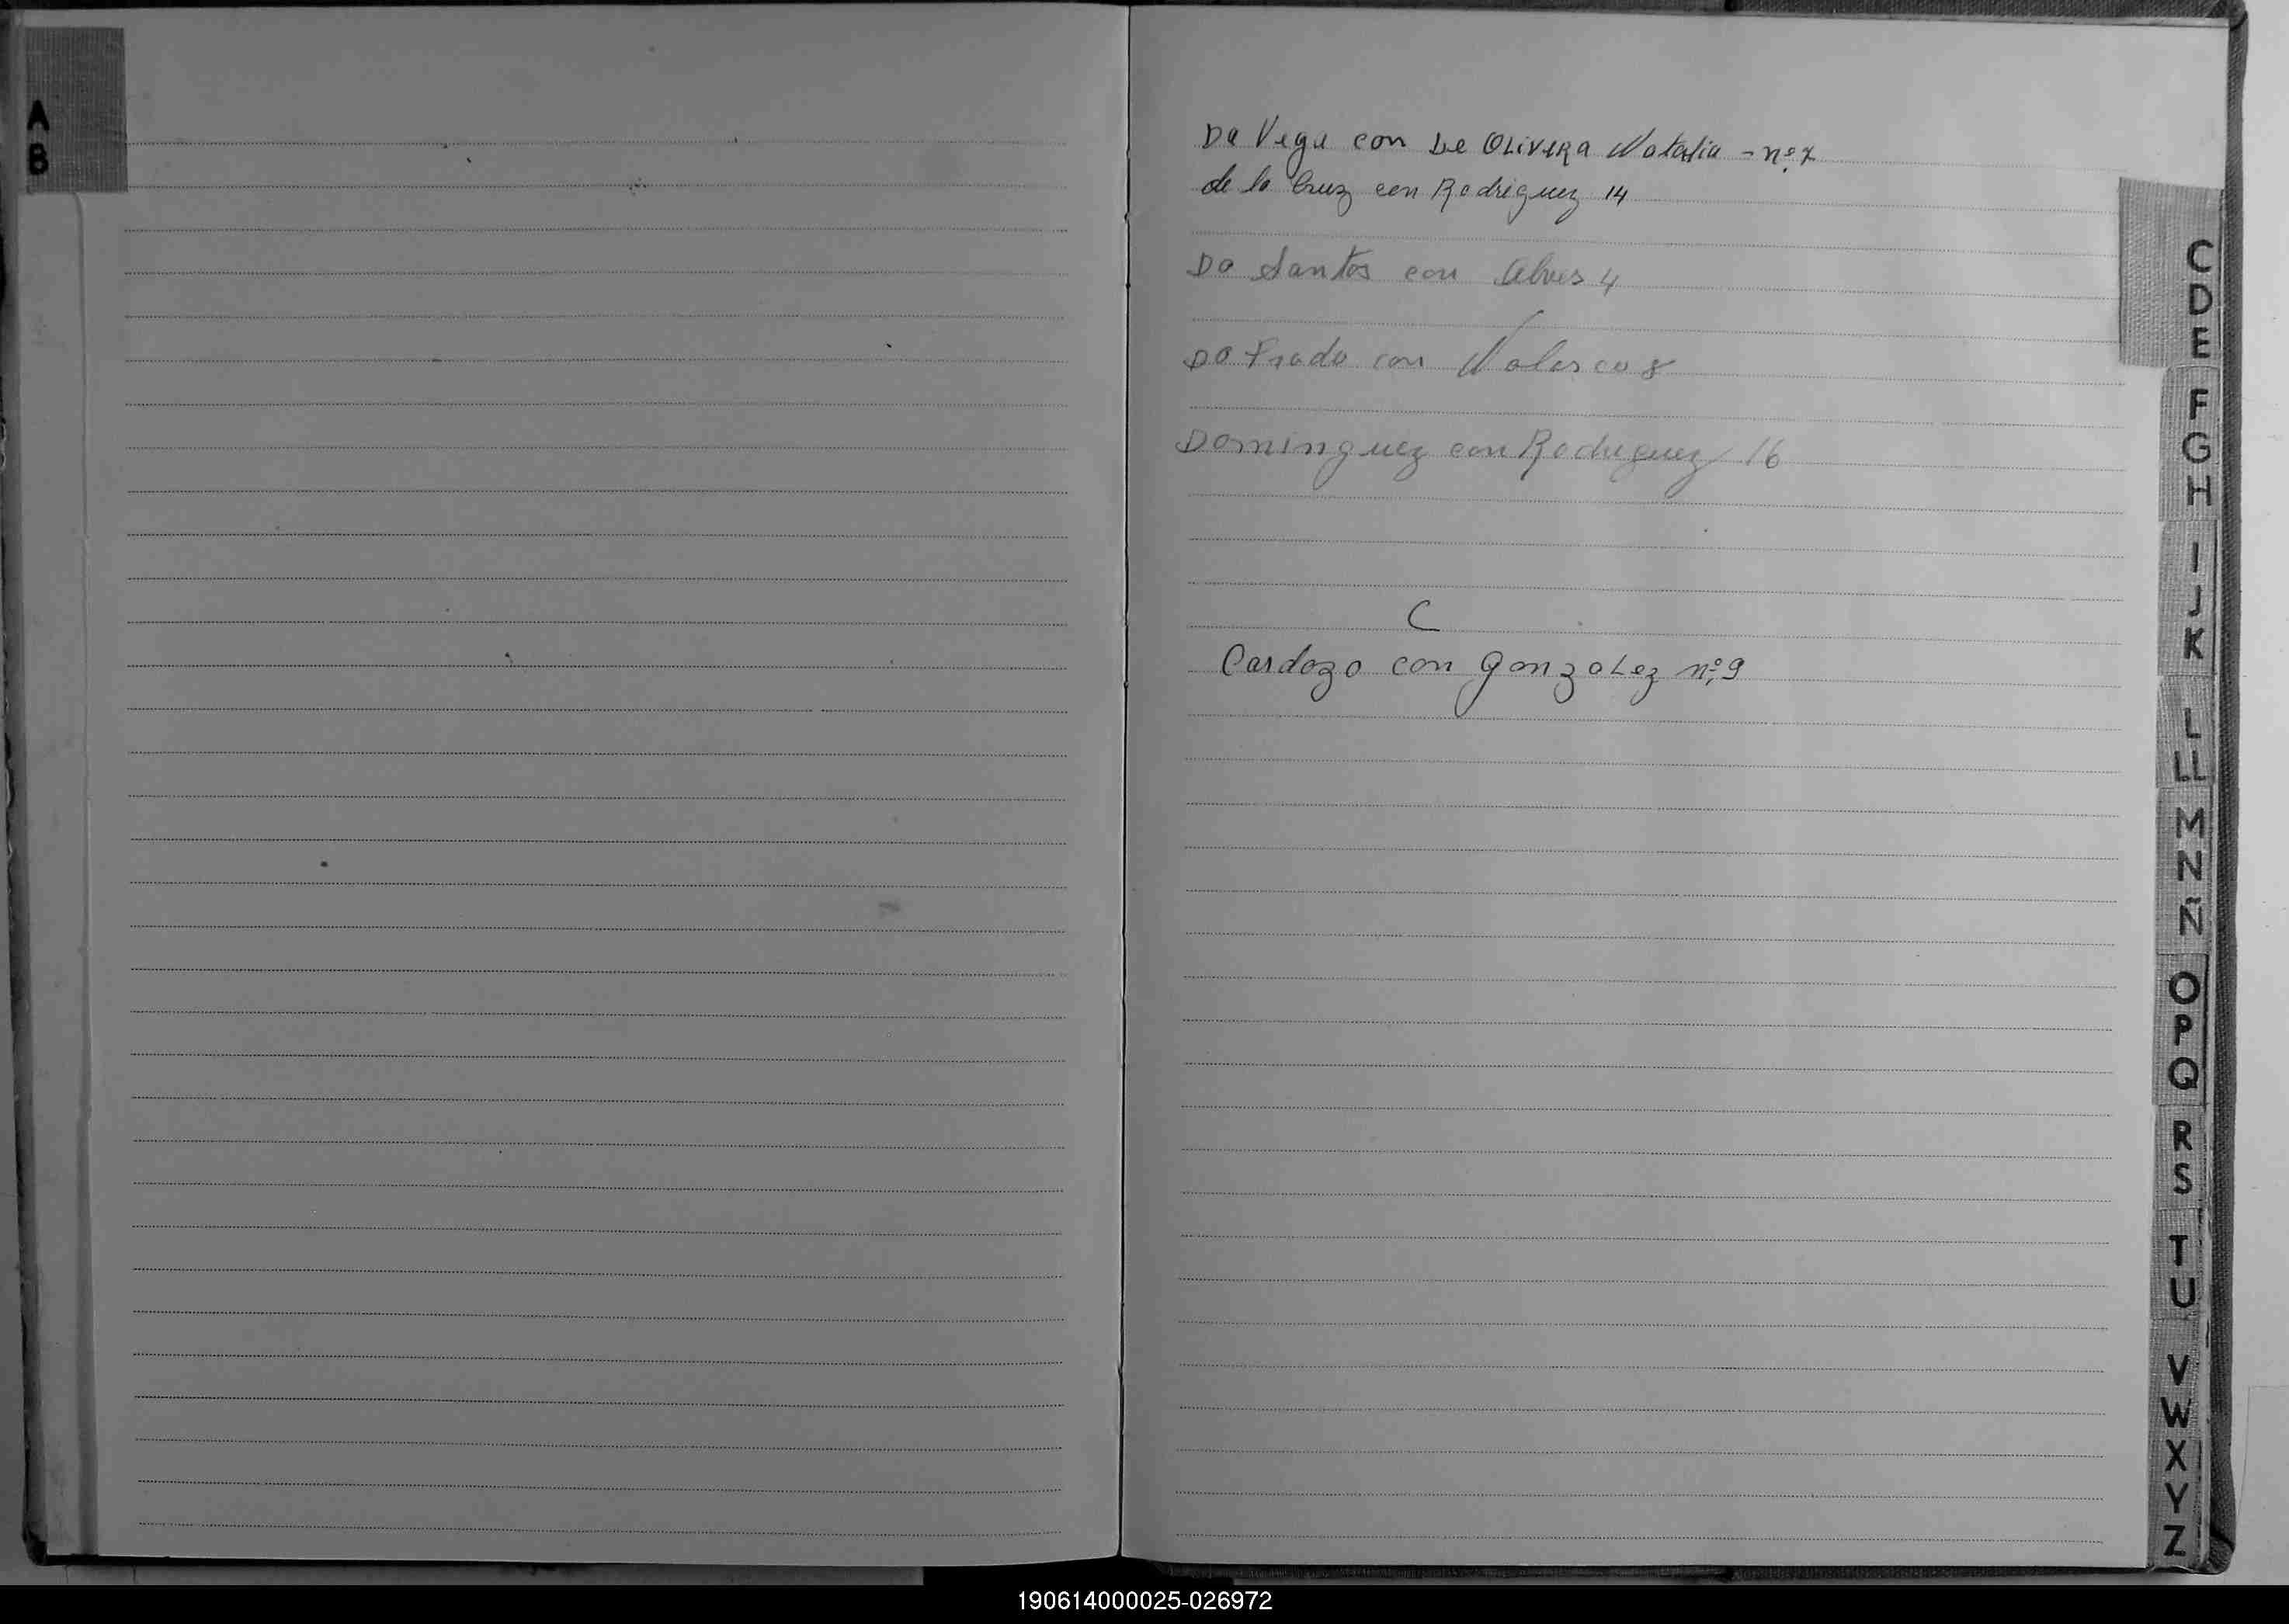 A
B
Da Vega con De OLiVERA Natalia - nº 7
de la Cruz con Rodriguez 14
Da Santos con Alves 4
Do Prado con Nolasco 8
Dominguez con Rodriguez 16
C
Cardozo con Gonzalez nº 9
C
D
E
F
G
H
I
J
K
L
LL
M
N
Ñ
O
P
Q
R
S
T
U
V
W
X
Y
Z
190614000025-026972